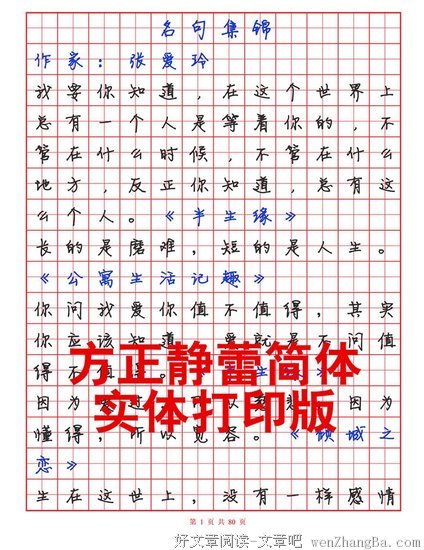 名句集锦
作家：张爱玲
我要你知道，在这个世界上
总有一个人是等着你的，不
管在什么时候，不管在什么
地方，反正你知道，总有这
么个人。《半生缘》
长的是磨难，短的是人生。
《公寓生活记趣》
你问我爱你值不值得，其实
你应该知道，爱就是不问值
得不值得。
方正静蕾简体
因为 过 以 因为
实体打印版
懂得，所以宽容。《倾城之
恋》
生在这世上，没有一样感情
第 1 页 共 80 页
好文章阅读-文章吧 wenZhangBa.com